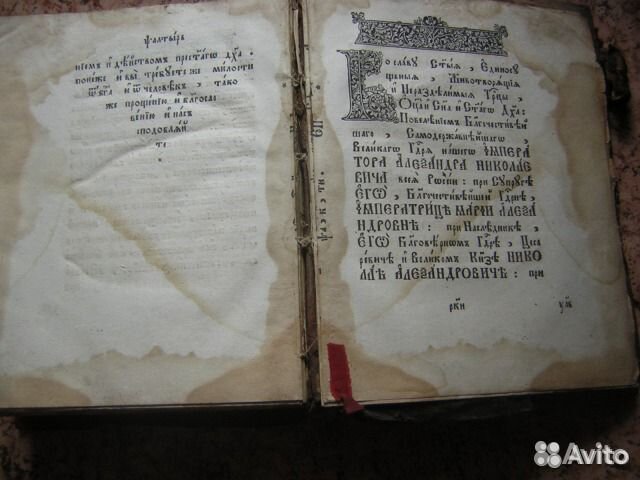 ѱалтырь
нїемъ и дѣйствомъ престаⷢ҇го дх҃а ·
понеже и вы требуете же милости
ѿ бг҃а и ѿ человѣкъ , тако
же прощенїю и благосло
венїю и насъ
сподоблѧй
те
Во славу ст҃ыѧ , Единосу
щныѧ , Животворѧщїѧ
и Нераздѣлимыѧ Трⷪ҇цы ,
Ѻц҃а и Сн҃а и Ст҃агѡ Дх҃а :
Повелѣнїемъ Благочестивѣй
шагѡ , Самодержавнѣйшагѡ ,
Великагѡ Гдⷭ҇рѧ нашегѡ ИМПЕРА
ТОРА АЛЕѮАНДРА НИКОЛАЕ
ВИЧА всеѧ Рѡссїи : при Супругѣ
ЕГѠ , Благочестивѣйшей Гдⷭ҇рнѣ ,
ИМПЕРАТРИЦѢ МАРІИ АЛЕѮА
НДРОВНѢ : при Наслѣдникѣ ,
ЕГѠ Благовѣрномъ Гдⷭ҇рѣ , Цеса
ревичѣ и Великомъ Кнѧзѣ НИКО
ЛАѢ АЛЕѮАНДРОВИЧѢ : при
Avito